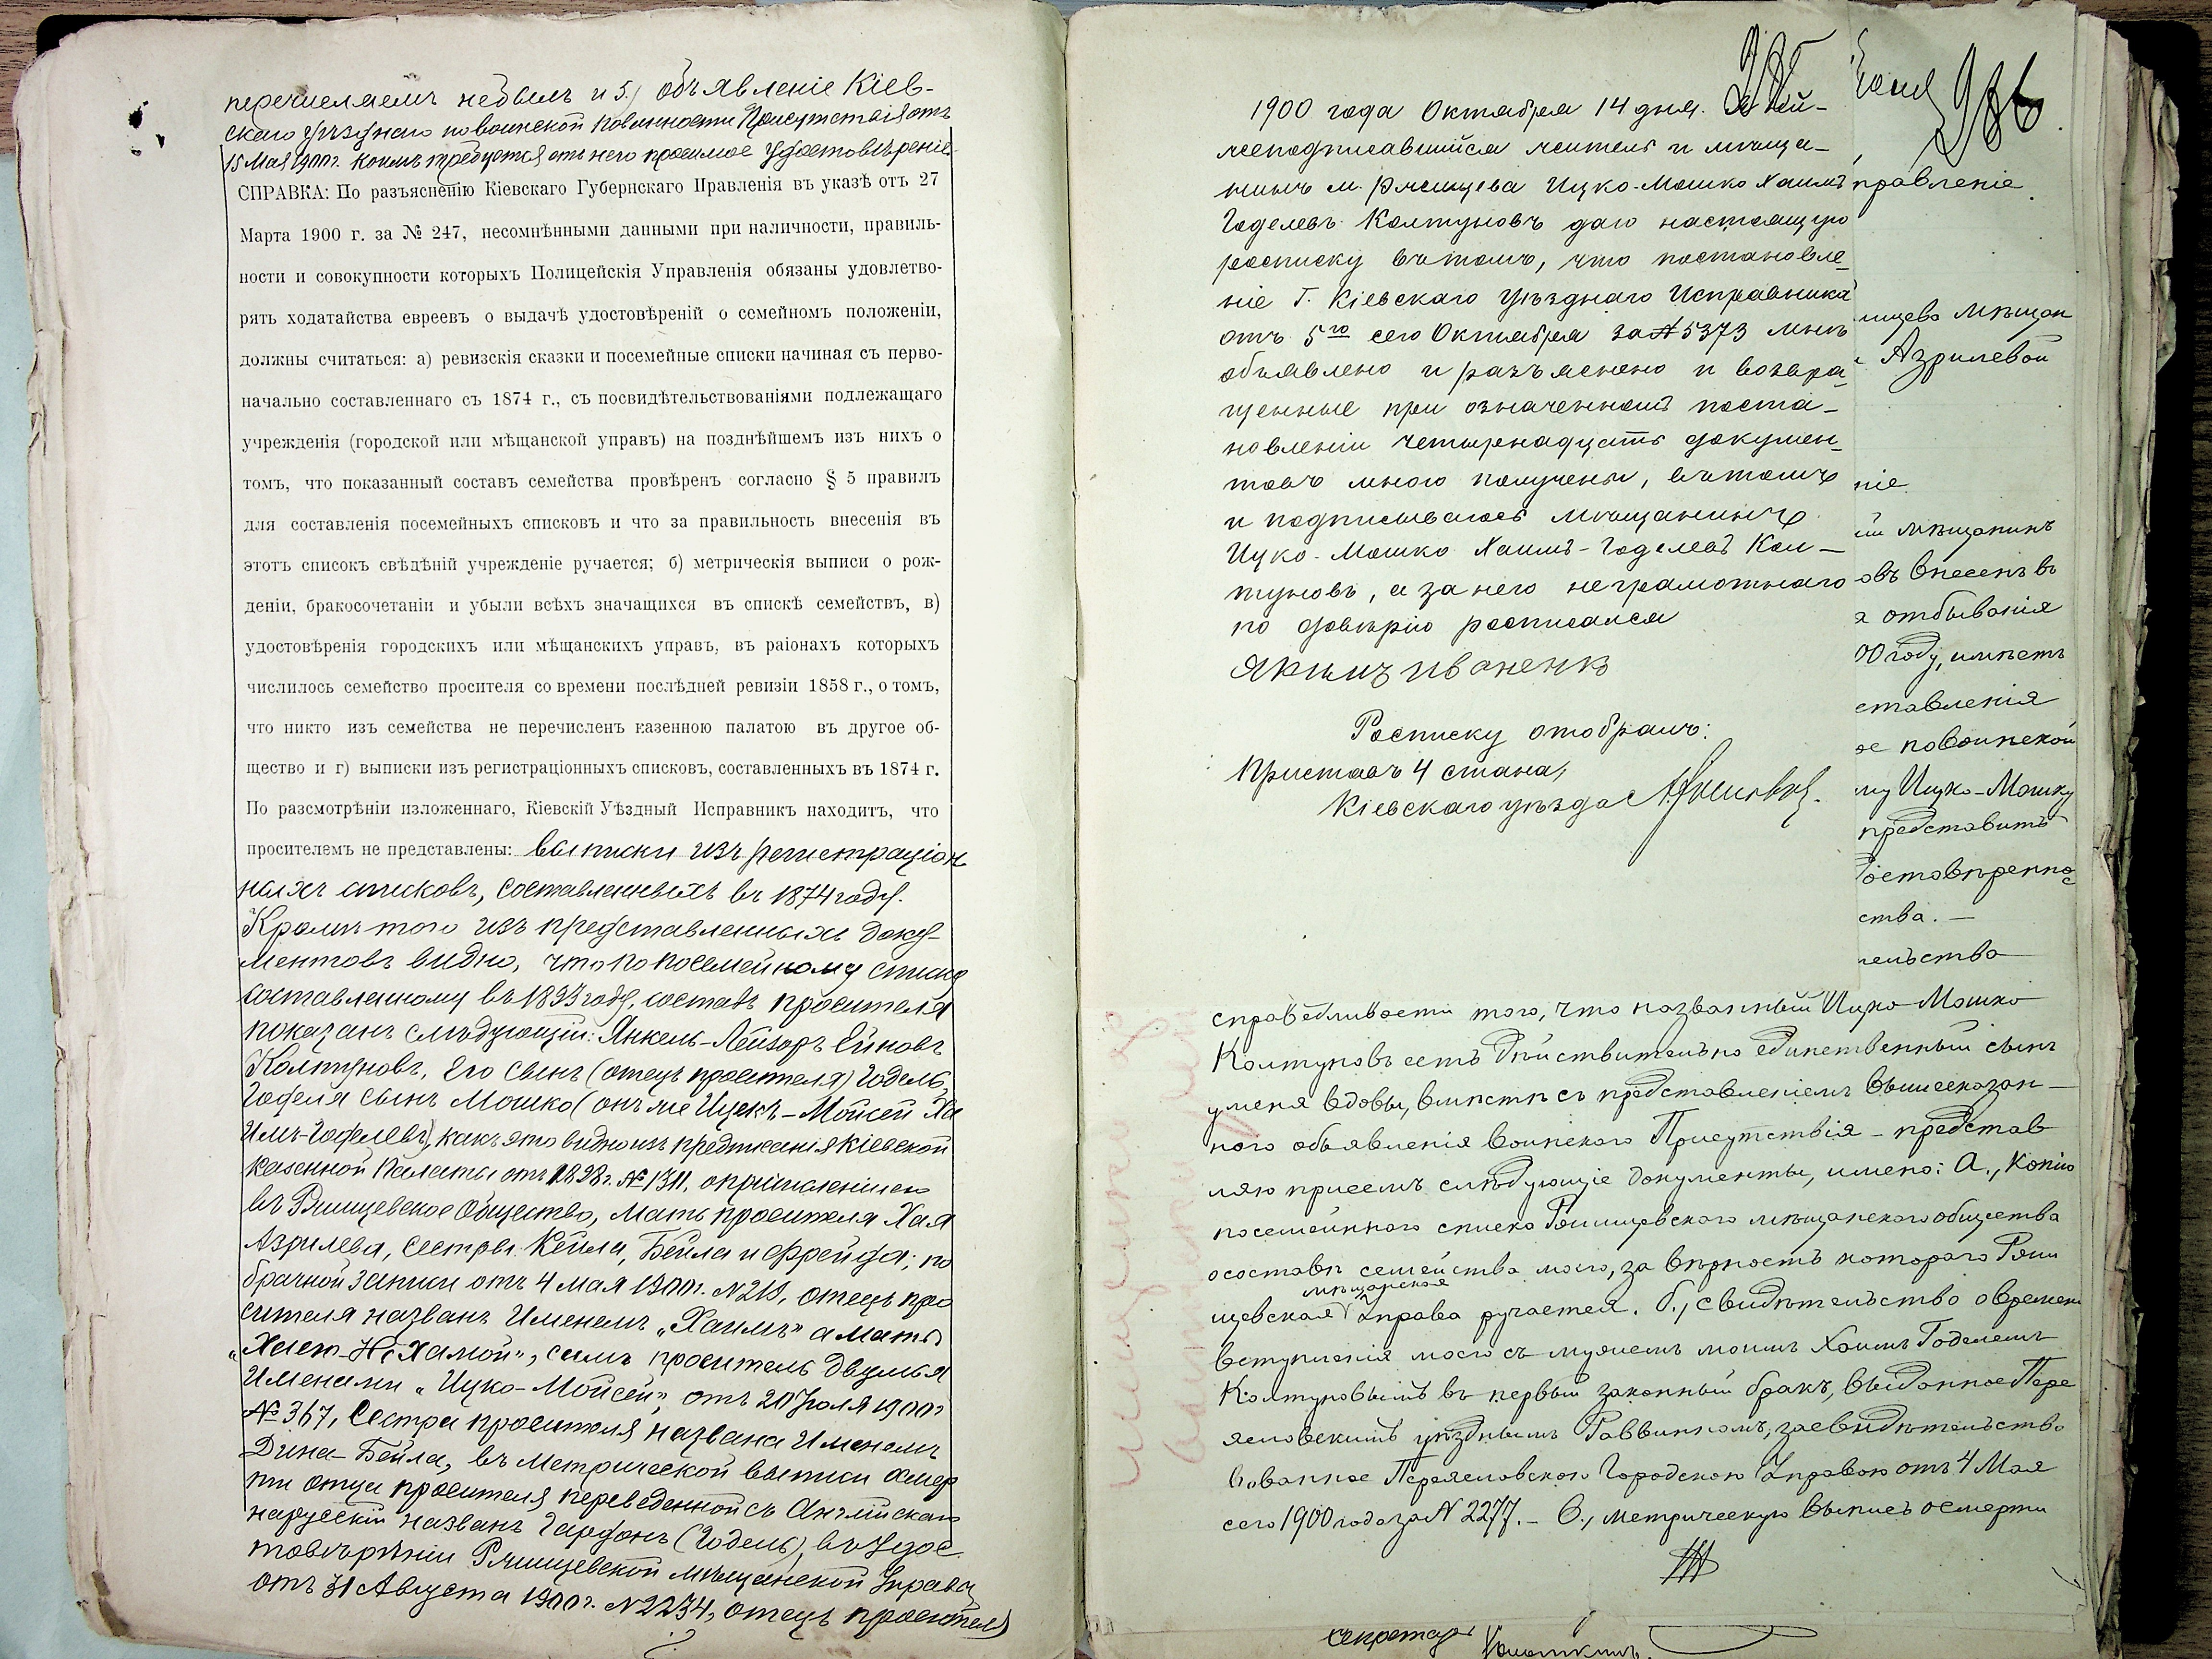 перечисляемъ небылъ и 5.) объявленіе Кіев-
скаго уѣзднаго по воинской повинности Присутствія отъ
15 Мая 1900г. коимъ требуется отъ него просимое удостовѣреніе.
СПРАВКА: По разъясненію Кіевскаго Губернскаго Правленія въ указѣ отъ 27
Марта 1900 г. за № 247, несомнѣнными данными при наличности, правиль-
ности и совокупности которыхъ Полицейскія Управленія обязаны удовлетво-
рять ходатайства евреевъ о выдачѣ удостовѣреній о семейномъ положеніи,
должны считаться: а) ревизскія сказки и посемейные списки начиная съ перво-
начально составленнаго съ 1874 г., съ посвидѣтельствованіями подлежащаго
учрежденія (городской или мѣщанской управъ) на позднѣйшемъ изъ нихъ о
томъ, что показанный составъ семейства провѣренъ согласно § 5 правилъ
для составленія посемейныхъ списковъ и что за правильность внесенія въ
этотъ списокъ свѣдѣній учрежденіе ручается; б) метрическія выписи о рож-
деніи, бракосочетаніи и убыли всѣхъ значащихся въ спискѣ семействъ, в)
удостовѣренія городскихъ или мѣщанскихъ управъ, въ раіонахъ которыхъ
числилось семейство просителя со времени послѣдней ревизіи 1858 г., о томъ,
что никто изъ семейства не перечисленъ казенною палатою въ другое об-
щество и г) выписки изъ регистраціонныхъ списковъ, составленныхъ въ 1874 г.
По разсмотрѣніи изложеннаго, Кіевскій Уѣздный Исправникъ находитъ, что
просителемъ не представлены: выписки изъ регистраціон
ныхъ списковъ, составленныхъ въ 1874 году.
Кромѣ того изъ представленныхъ доку-
ментовъ видно, что по посемейному списку
составленному въ 1893 году, составъ просителя
показанъ слѣдующій: Янкель-Лейзоръ Ейновъ
Колтуновъ, его сынъ (отецъ просителя) Годель,
Годеля сынъ Мошко (онъ же Ицекъ-Мойсей Ха
имъ-Годелевъ), какъ это видно изъ предписанія Кіевской
Казенной Палаты отъ 1898г. № 1311, о причисленіи
въ Ржищевское Общество, мать просителя Хая
Азрилева, сестры Кейла, Бейла и Фрейда; по
брачной записи отъ 4 мая 1900г. № 218, отецъ про
сителя названъ именемъ „Хаимъ" а мать
„Хаею-Нехамой", самъ проситель двумя
именами „Ицко-Мойсей", отъ 20 Іюля 1900г
№ 367, сестра просителя названа именемъ
Дина-Бейла, въ метрической выписи о смер
ти отца просителя переведенной съ Англійскаго
на русскій названъ Гардонъ (Годель), въ удос
товѣреніи Ржищевской мѣщанской Управы
отъ 31 Августа 1900г. № 2234, отецъ просителя
1900 года Октября 14 дня. Я ни-
жеподписавшійся житель и мѣща-
нинъ м. Ржищева Ицко-Мошко Хаимъ
Годелевъ Колтуновъ даю настоящую
росписку въ томъ, что постановле-
ніе Г. Кіевскаго Уѣзднаго Исправника
отъ 5го сего Октября за № 5373 мнѣ
объявлено и разъяснено и возвра-
щенные при означенномъ поста-
новленіи четырнадцать докумен-
товъ мною получены, въ томъ
и подписываюсь мѣщанинъ
Ицко-Мошко Хаимъ-Годелевъ Кол-
туновъ, а за него неграмотнаго
по довѣрію росписался
Якимъ Иваненко
Росписку отобралъ:
Приставъ 4 стана,
Кіевскаго уѣзда
986
правленіе
ищева мѣщан
Азрилевой
ніе
ій мѣщанинъ
овъ внесенъ въ
я отбыванія
00 году, имѣетъ
ставленія
ое по воинской
му Ицко-Мошку
представить
достовѣренно
ства. —
тельства
справедливости того, что названный Ицко Мошко
Колтуновъ есть дѣйствительно единственный сынъ
у меня вдовы, вмѣстѣ съ представленіемъ вышесказан-
ного объявленія Воинского Присутствія - представ
ляю присемъ слѣдующіе документы, имено: А., копію
посемейнного списка Ржищевского мѣщанского общества
о составѣ семейства моего, за вѣрность которого Ржи
мѣщанская
щевская Управа ручается. б., свидѣтельство о времени
вступленія моего съ мужемъ моимъ Хаимъ Годелемъ
Колтуновымъ въ первый законный бракъ, выданное Пере
яславскимъ уѣзднымъ Раввиномъ, засвидѣтельство
вованное Переяславскою Городскою Управою отъ 4 Мая
сего 1900 года за N 2277. - В., метрическую выпись о смерти
Секретарь